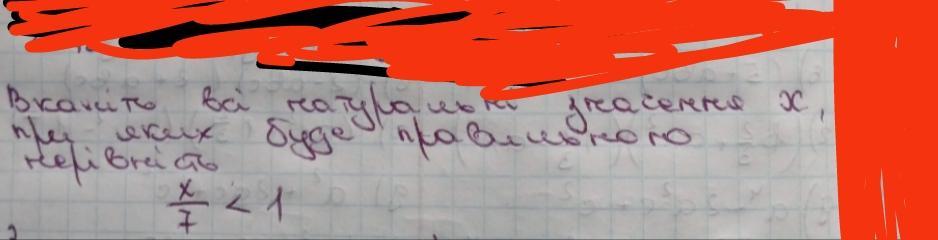 Вкажіть всі натуральні значення x,
при яких буде правильною
нерівність
x/7 < 1